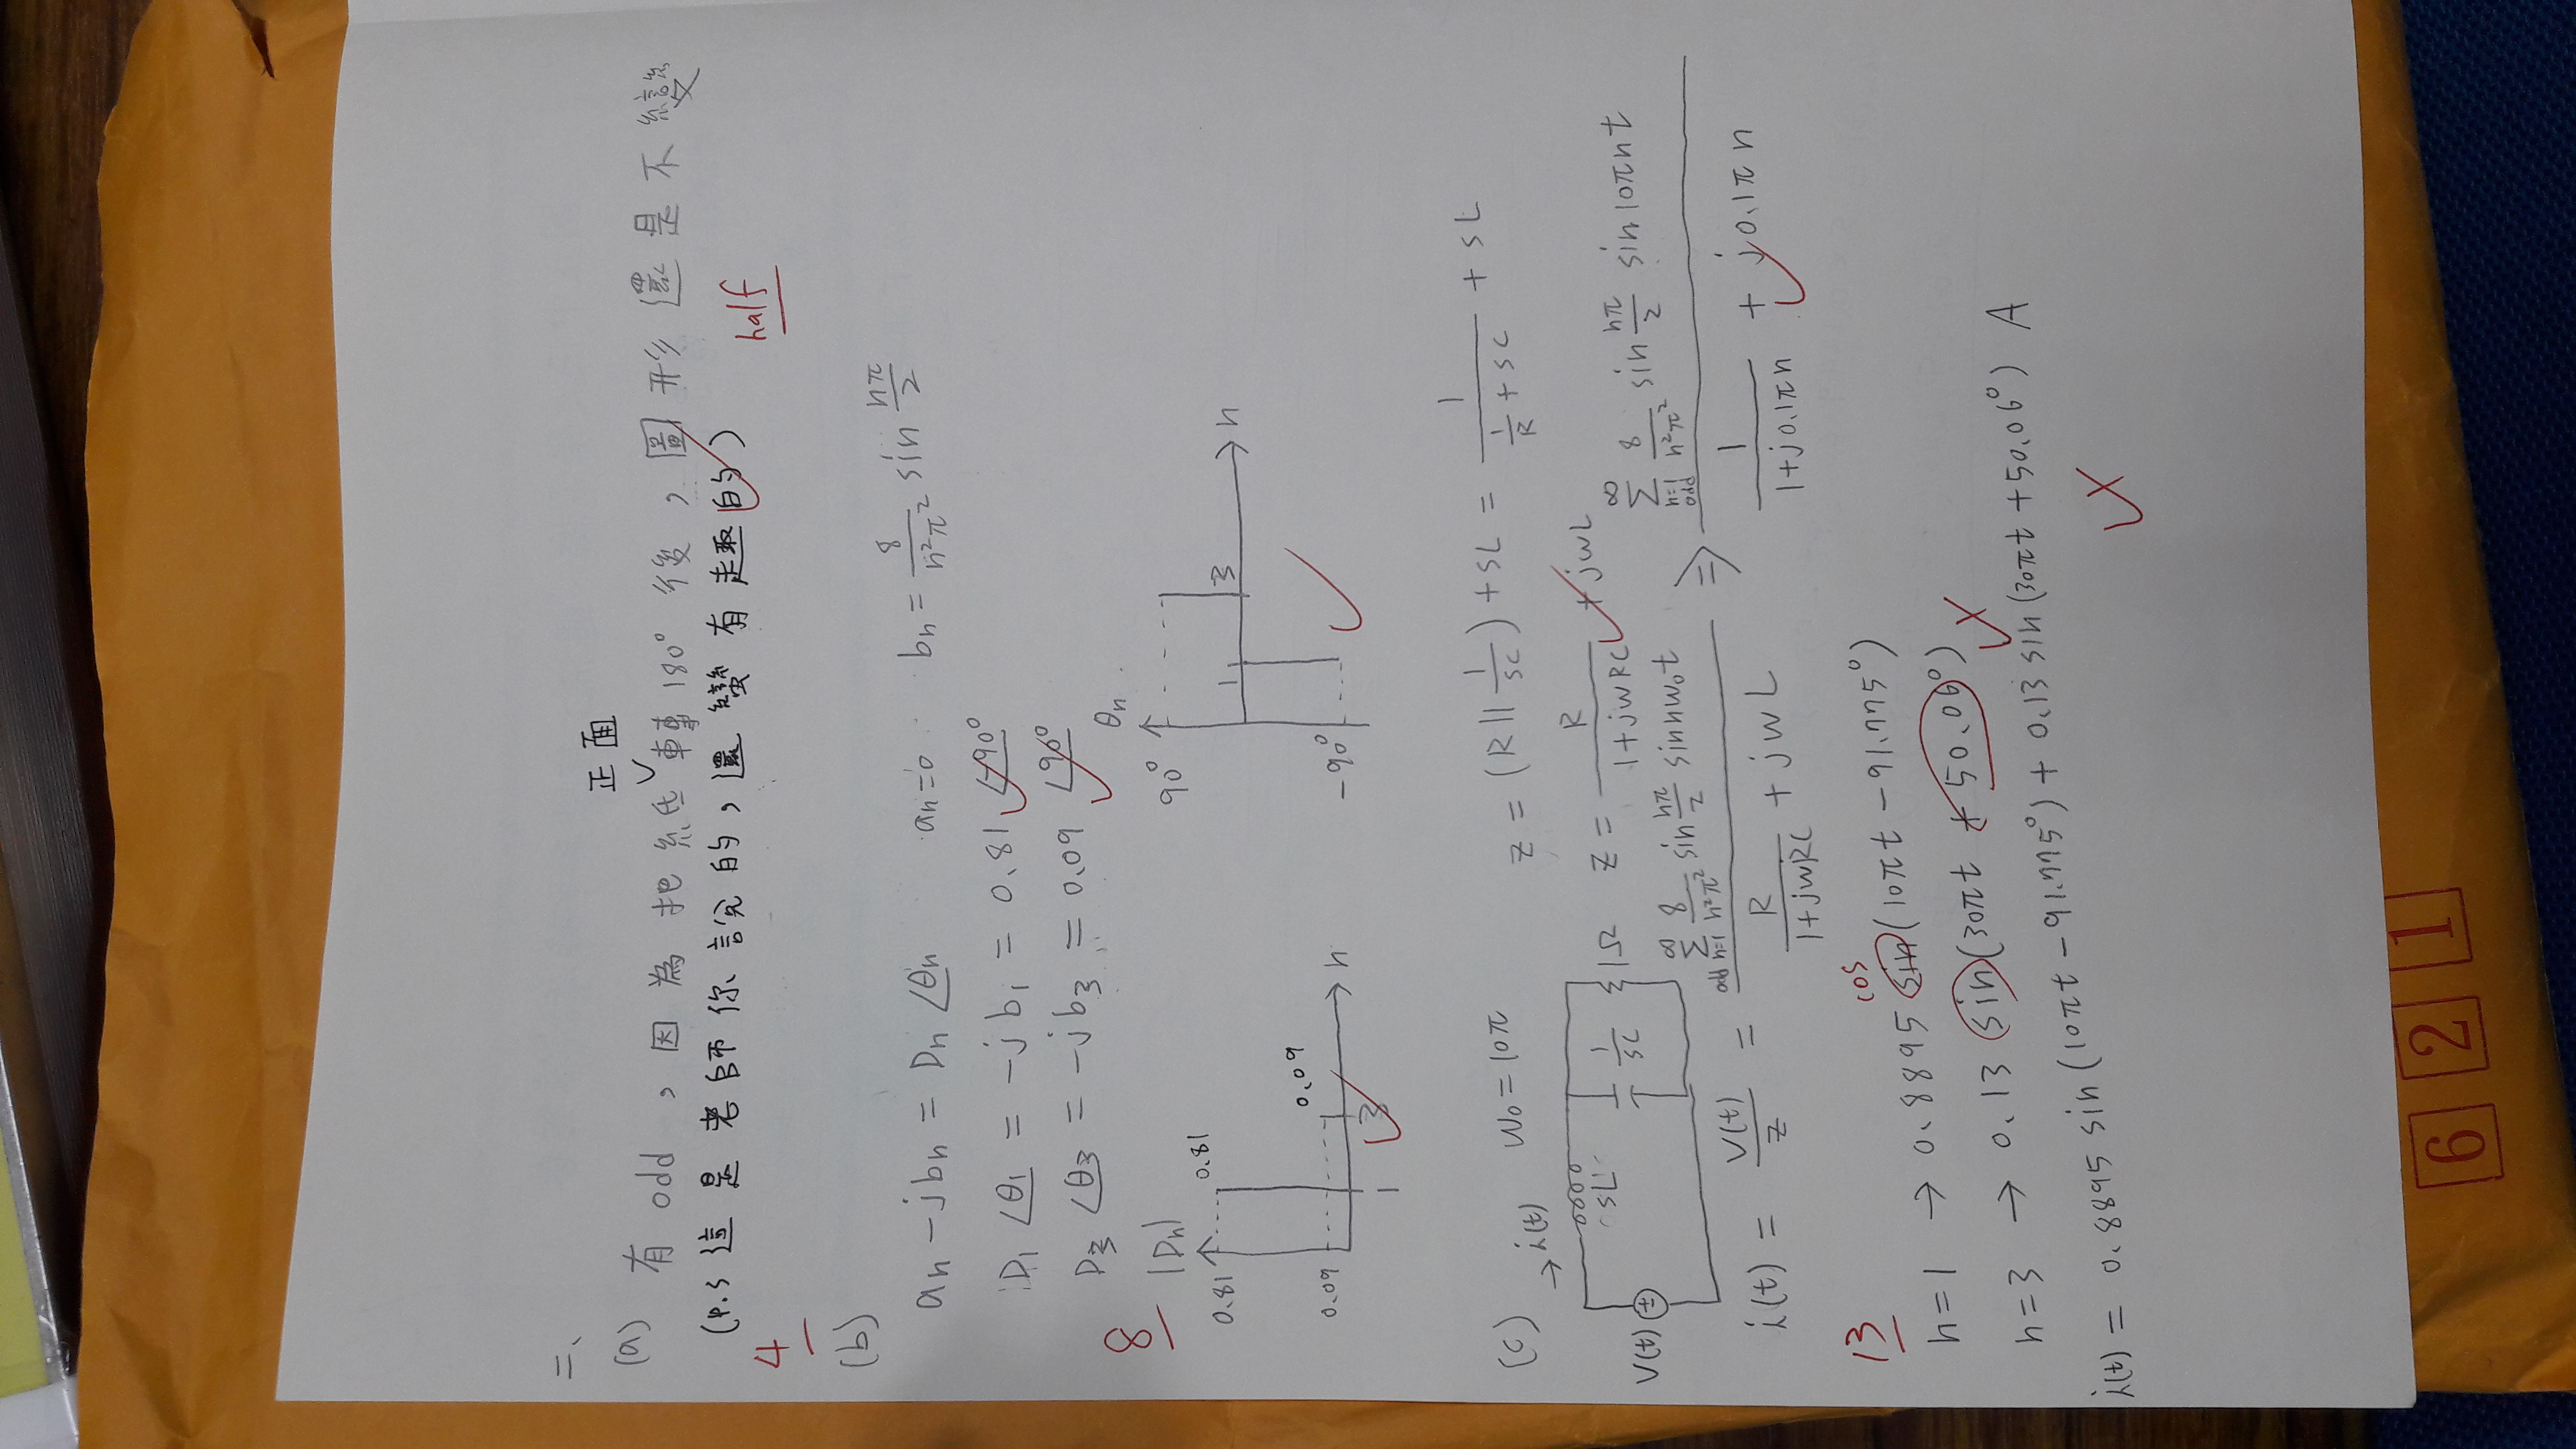 二、
正面
(a) 有 odd ，因為把紙轉180°後，圖形還是不變
(P.S 這是老師你說的，還蠻有趣的)
half
4
(b)
an - jbn = Dn ∠θn   an = 0   bn = 8/n²π² sin nπ/2
D1 ∠θ1 = -jb1 = 0.81 ∠-90°
D3 ∠θ3 = -jb3 = 0.09 ∠90°
8
|Dn|
0.81
0.81
0.09
0.09
1
3
n
θn
90°
1
3
n
-90°
(c) i(t) W0 = 10π   z = (R || 1/sC) + sL = 1/(1/R + sC) + sL
sL
1/sC
1Ω
V(t)
z = R/(1+jwRC) + jwL
i(t) = V(t)/z = (∑ odd n=1 ∞ 8/n²π² sin nπ/2 sin nw0t)/(R/(1+jwRC) + jwL) ⇒ (∑ n=1 odd ∞ 8/n²π² sin nπ/2 sin 10πnt)/(1/(1+j0.1πn) + j0.1πn)
13
cos
n=1 → 0.8895 sin(10πt - 91.775°)
n=3 → 0.13 sin(30πt + 50.06°)
i(t) = 0.8895 sin(10πt - 91.775°) + 0.13 sin(30πt + 50.06°) A
6 2 1